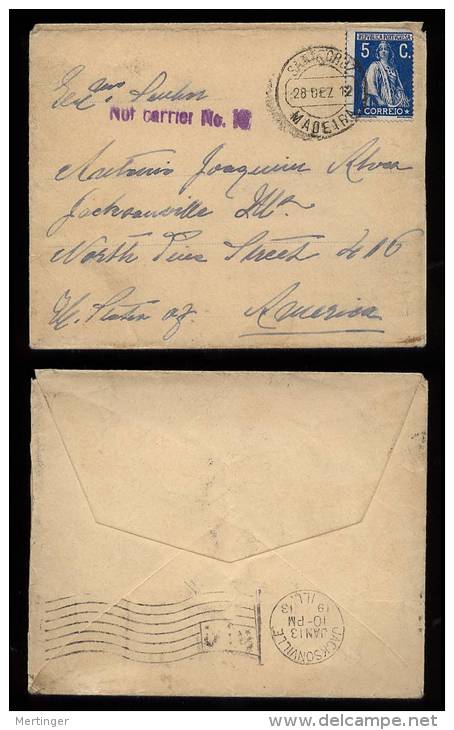 REPUBLICA PORTUGUESA
5 C.
CORREIO
SANTA CRUZ
28 DEZ. 12
MADEIRA
Snr
Not carrier No.
Antonio Joaquim Alves
Jacksonville Ills
North Pine Street 416
U. States of America
JACKSONVILLE
JAN 13
10-PM
1913
ILL.
Mertinger
http://www.delcampe.net